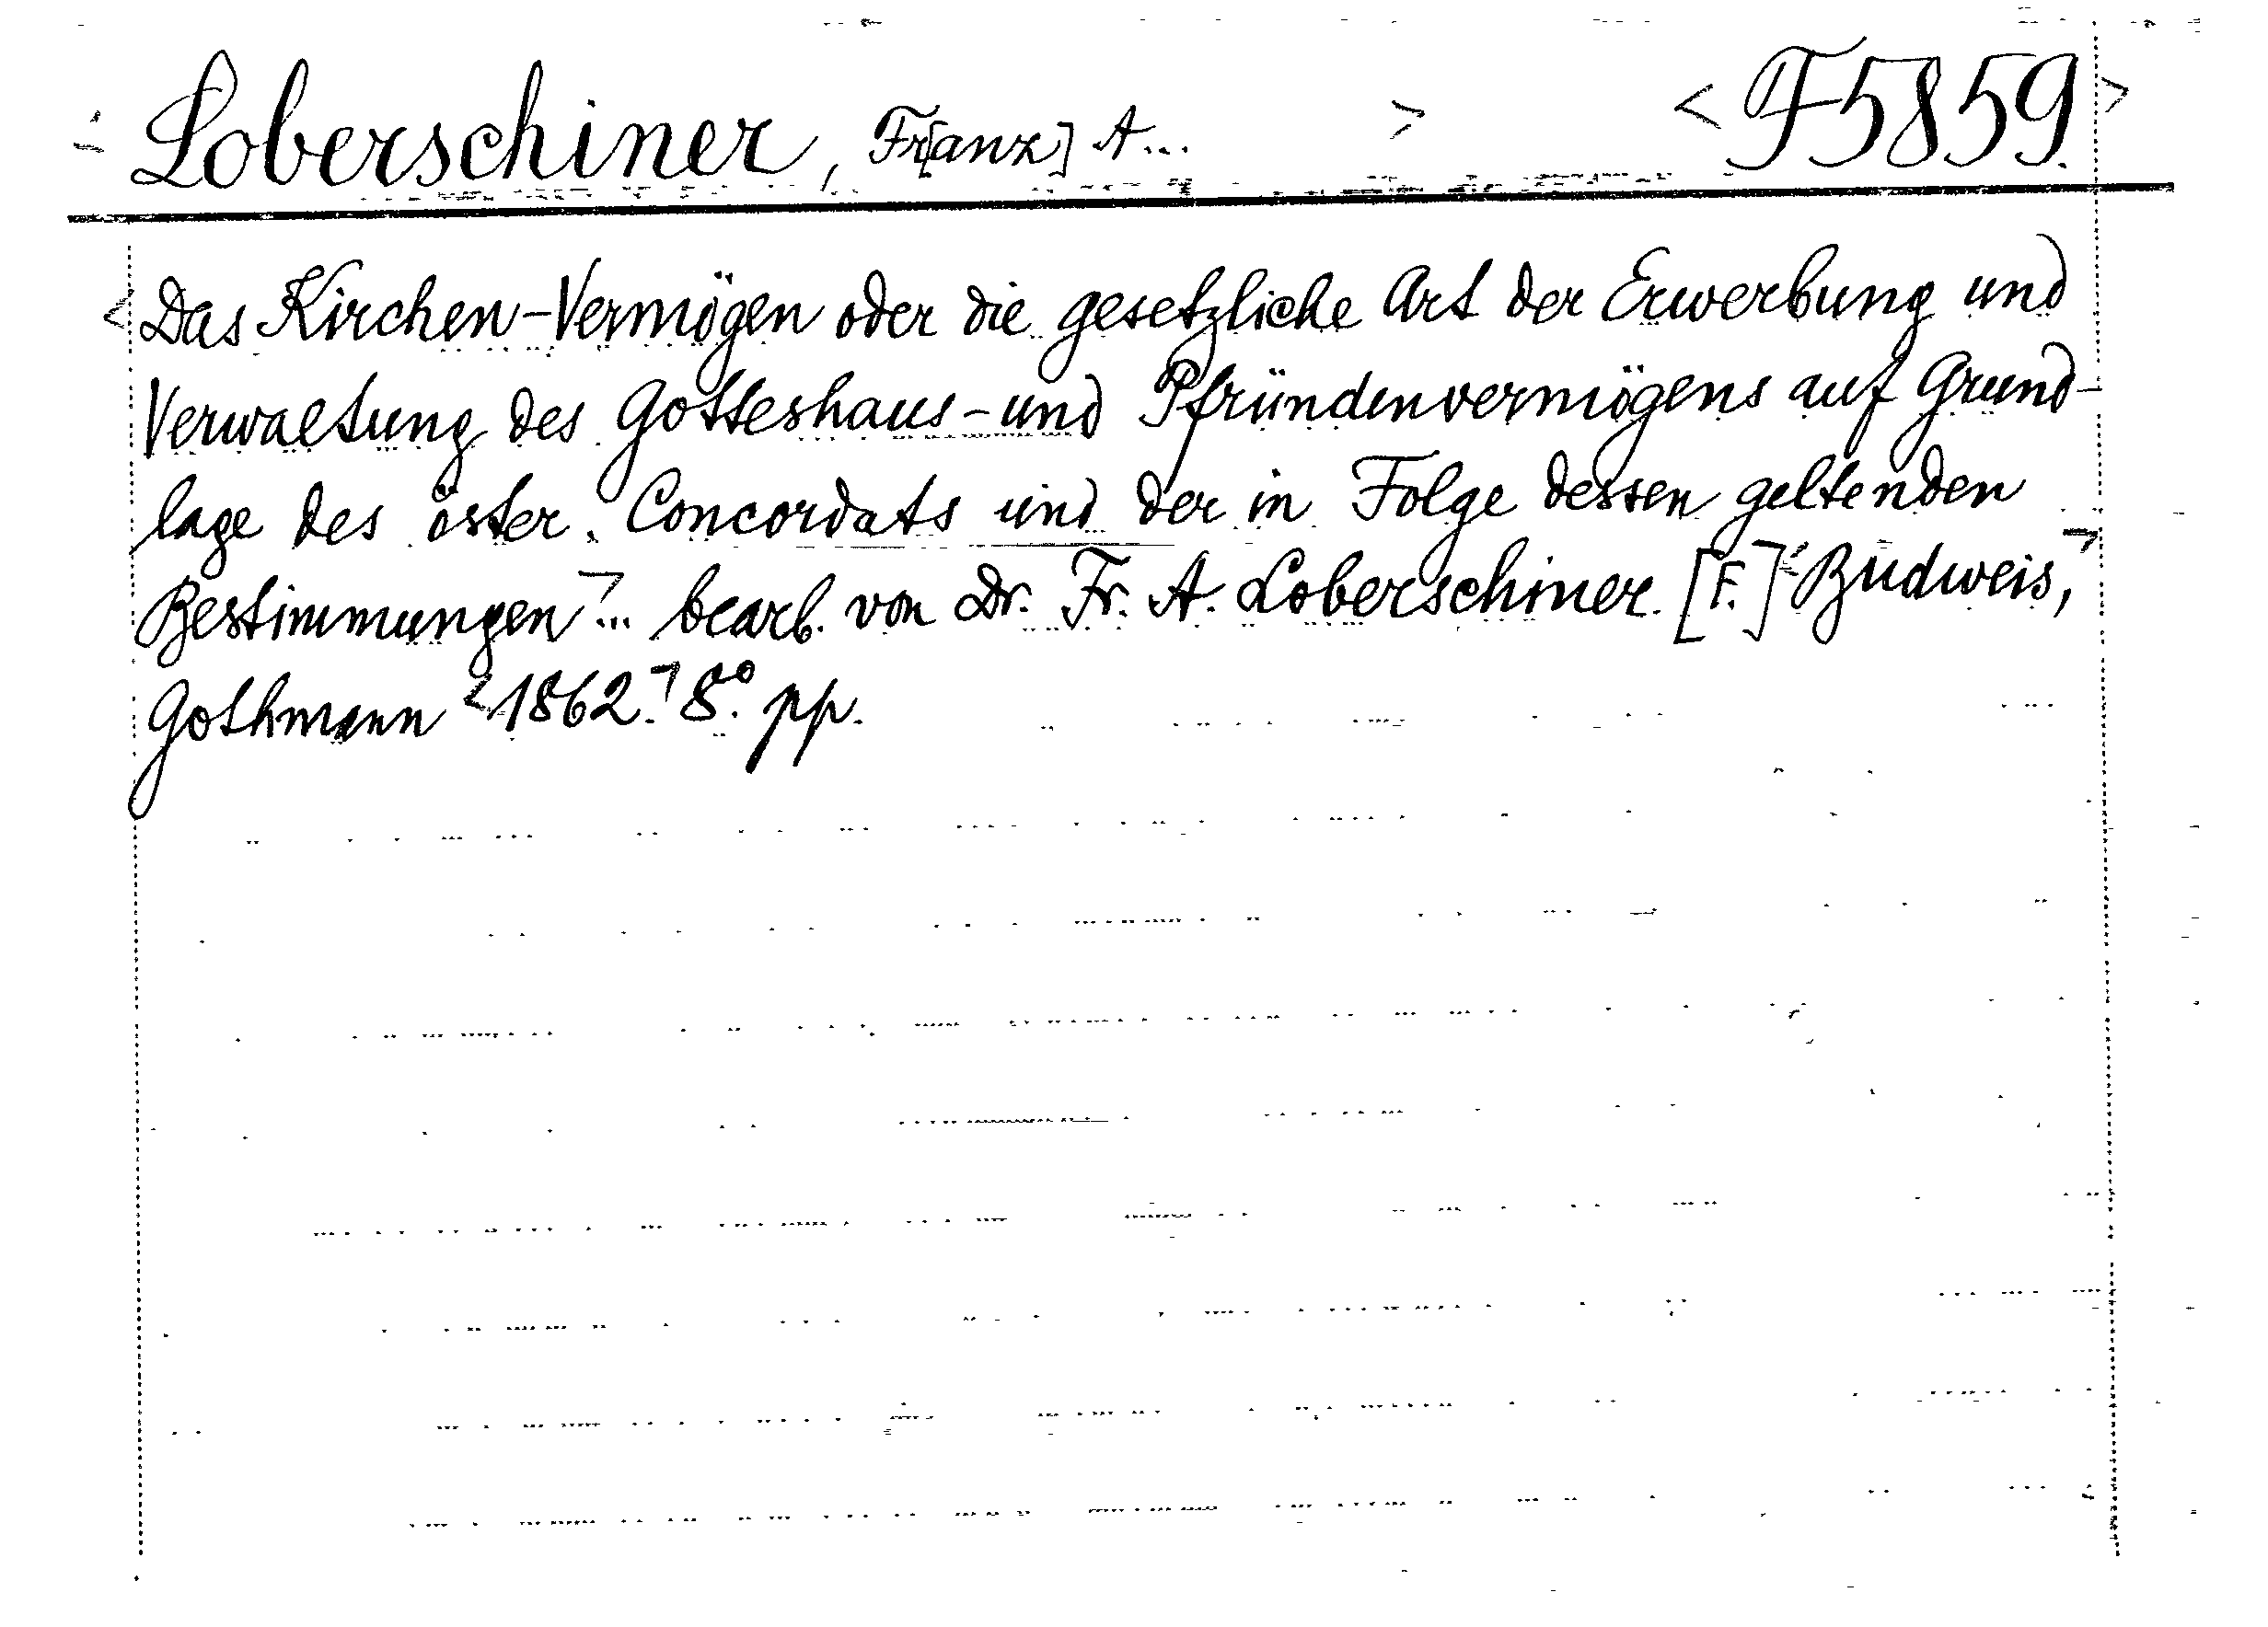 Loberschiner, Fr[anz] A... > <F5859.>
<Das Kirchen-Vermögen oder die gesetzliche Art der Erwerbung und
Verwaltung des Gotteshaus- und Pfründenvermögens auf Grund-
lage des öster. Concordats und der in Folge dessen geltenden
Bestimmungen> ... bearb. von Dr. Fr. A. Loberschiner. [F.] <Budweis,>
Gothmann <1862.> 8°. pp.